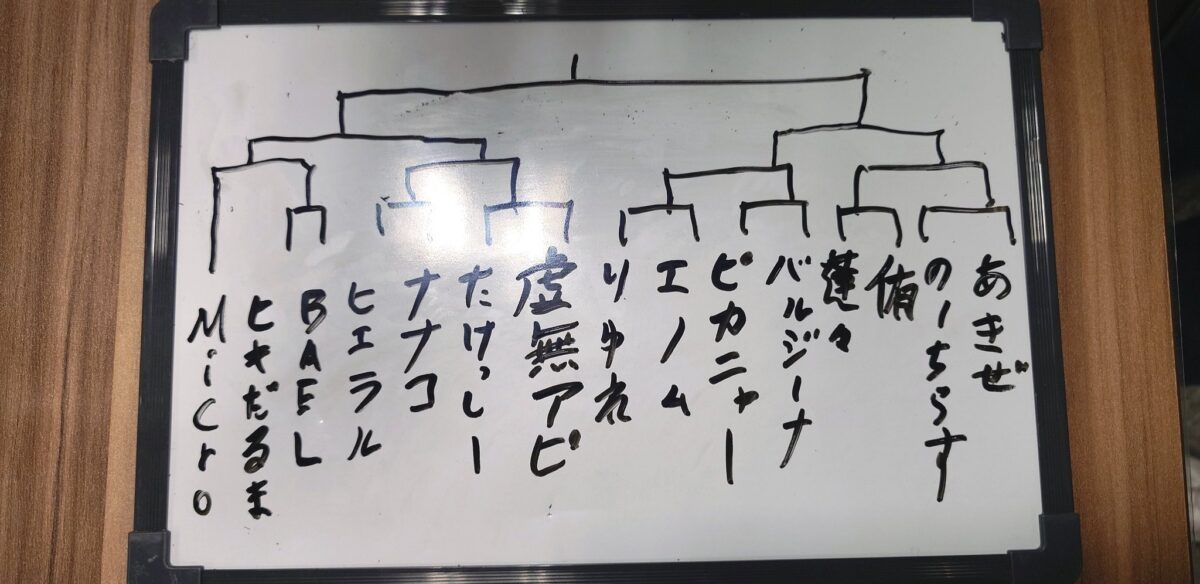 Micro
ヒキだるま
BAEL
ヒエラル
ナナコ
たけっしー
虚無アピ
りゅれ
エノム
ピカニャー
バルジーナ
蓮々
侑
のーちらす
あきぜ